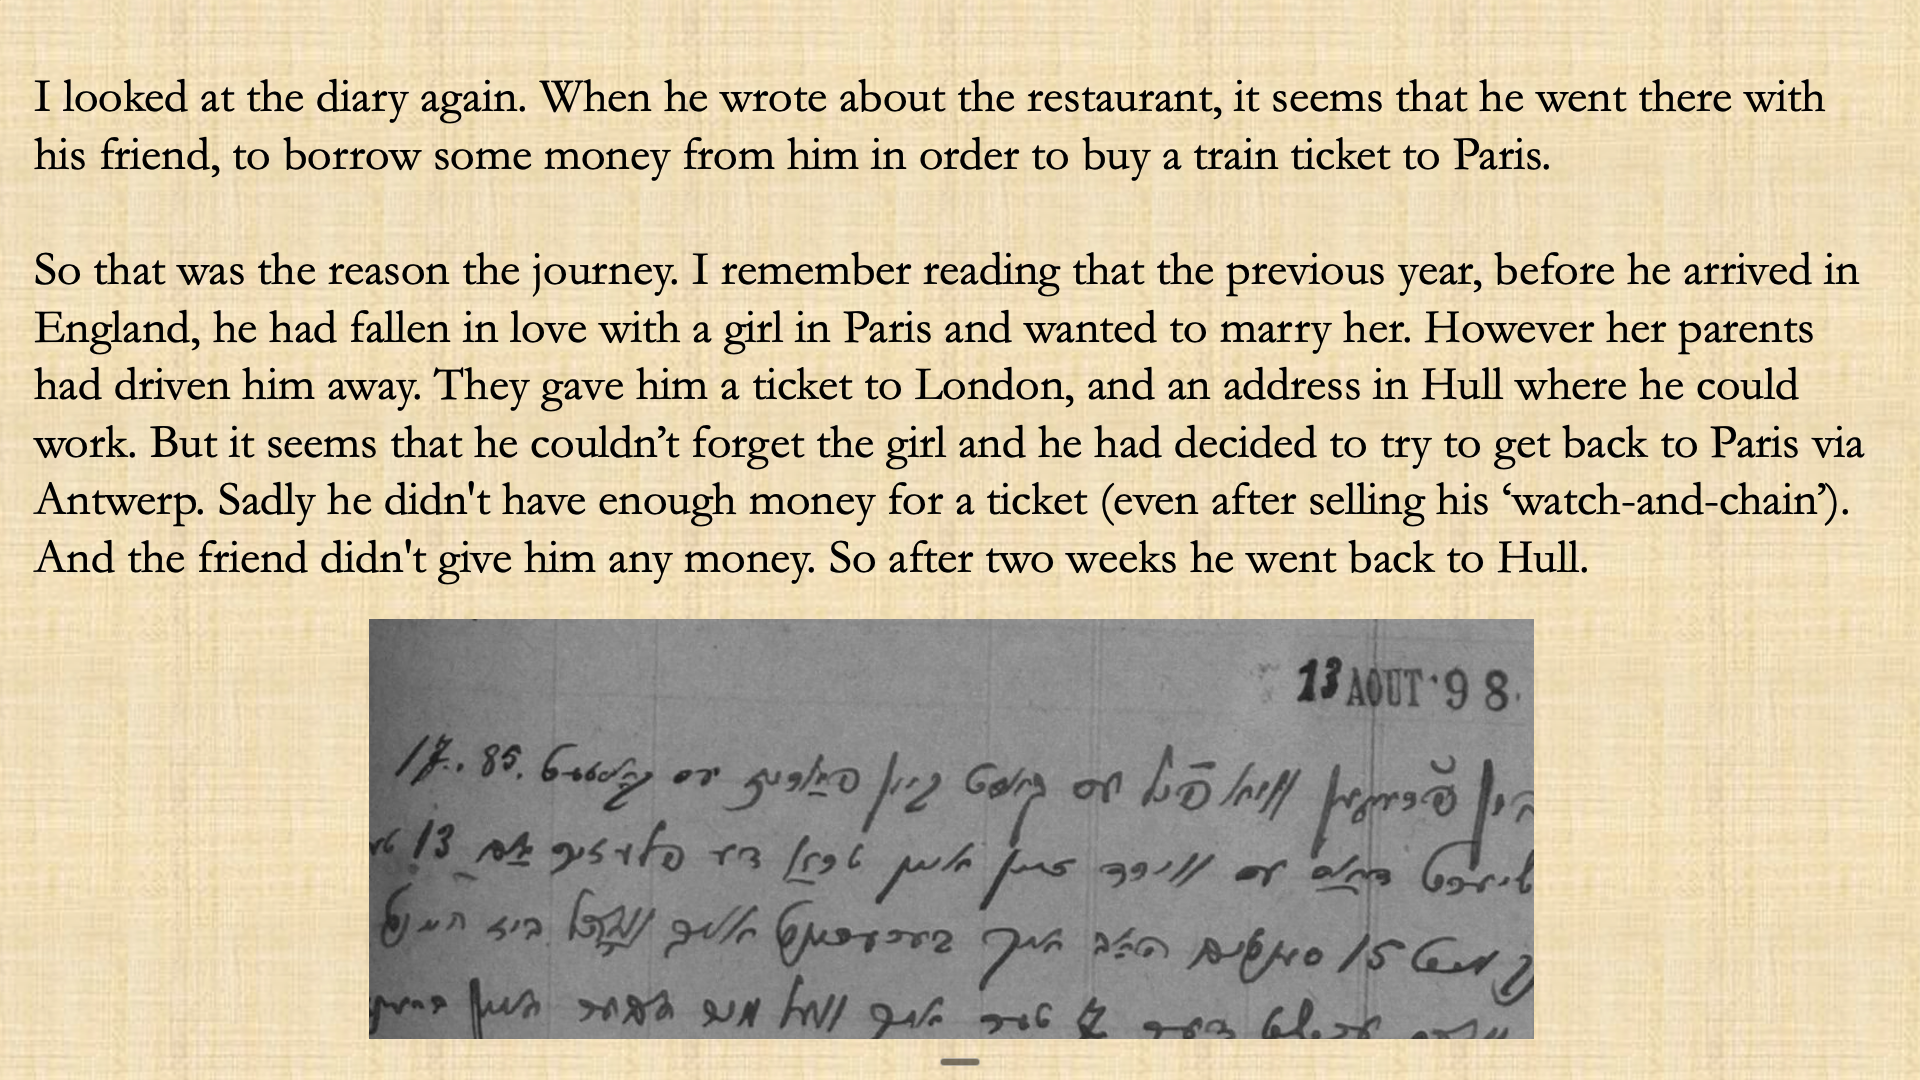 I looked at the diary again. When he wrote about the restaurant, it seems that he went there with
his friend, to borrow some money from him in order to buy a train ticket to Paris.
So that was the reason the journey. I remember reading that the previous year, before he arrived in
England, he had fallen in love with a girl in Paris and wanted to marry her. However her parents
had driven him away. They gave him a ticket to London, and an address in Hull where he could
work. But it seems that he couldn’t forget the girl and he had decided to try to get back to Paris via
Antwerp. Sadly he didn't have enough money for a ticket (even after selling his ‘watch-and-chain’).
And the friend didn't give him any money. So after two weeks he went back to Hull.
13 AOUT '98.
וויפל עס קאסט קיין פאריז עס קאסטעט 17.85.
דאס עס ווירד זיין איין טרא דע פלעזיר אם 13
15 סענטים האב איך